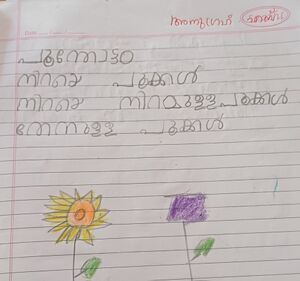 അനുഗ്രഹ്
പൂന്തോട്ടം
നിറയെ പൂക്കൾ
നിറയെ നിറമുള്ള പൂക്കൾ
തേനുള്ള പൂക്കൾ